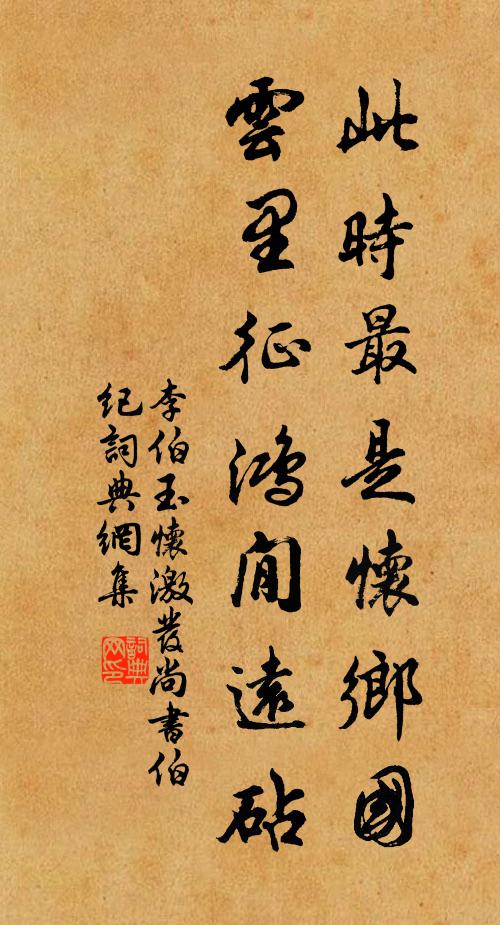 此時最是懷鄉國
雲里征鴻閒遠砧
李伯玉懷激發尚書伯
紀詞典網集
詞典网印